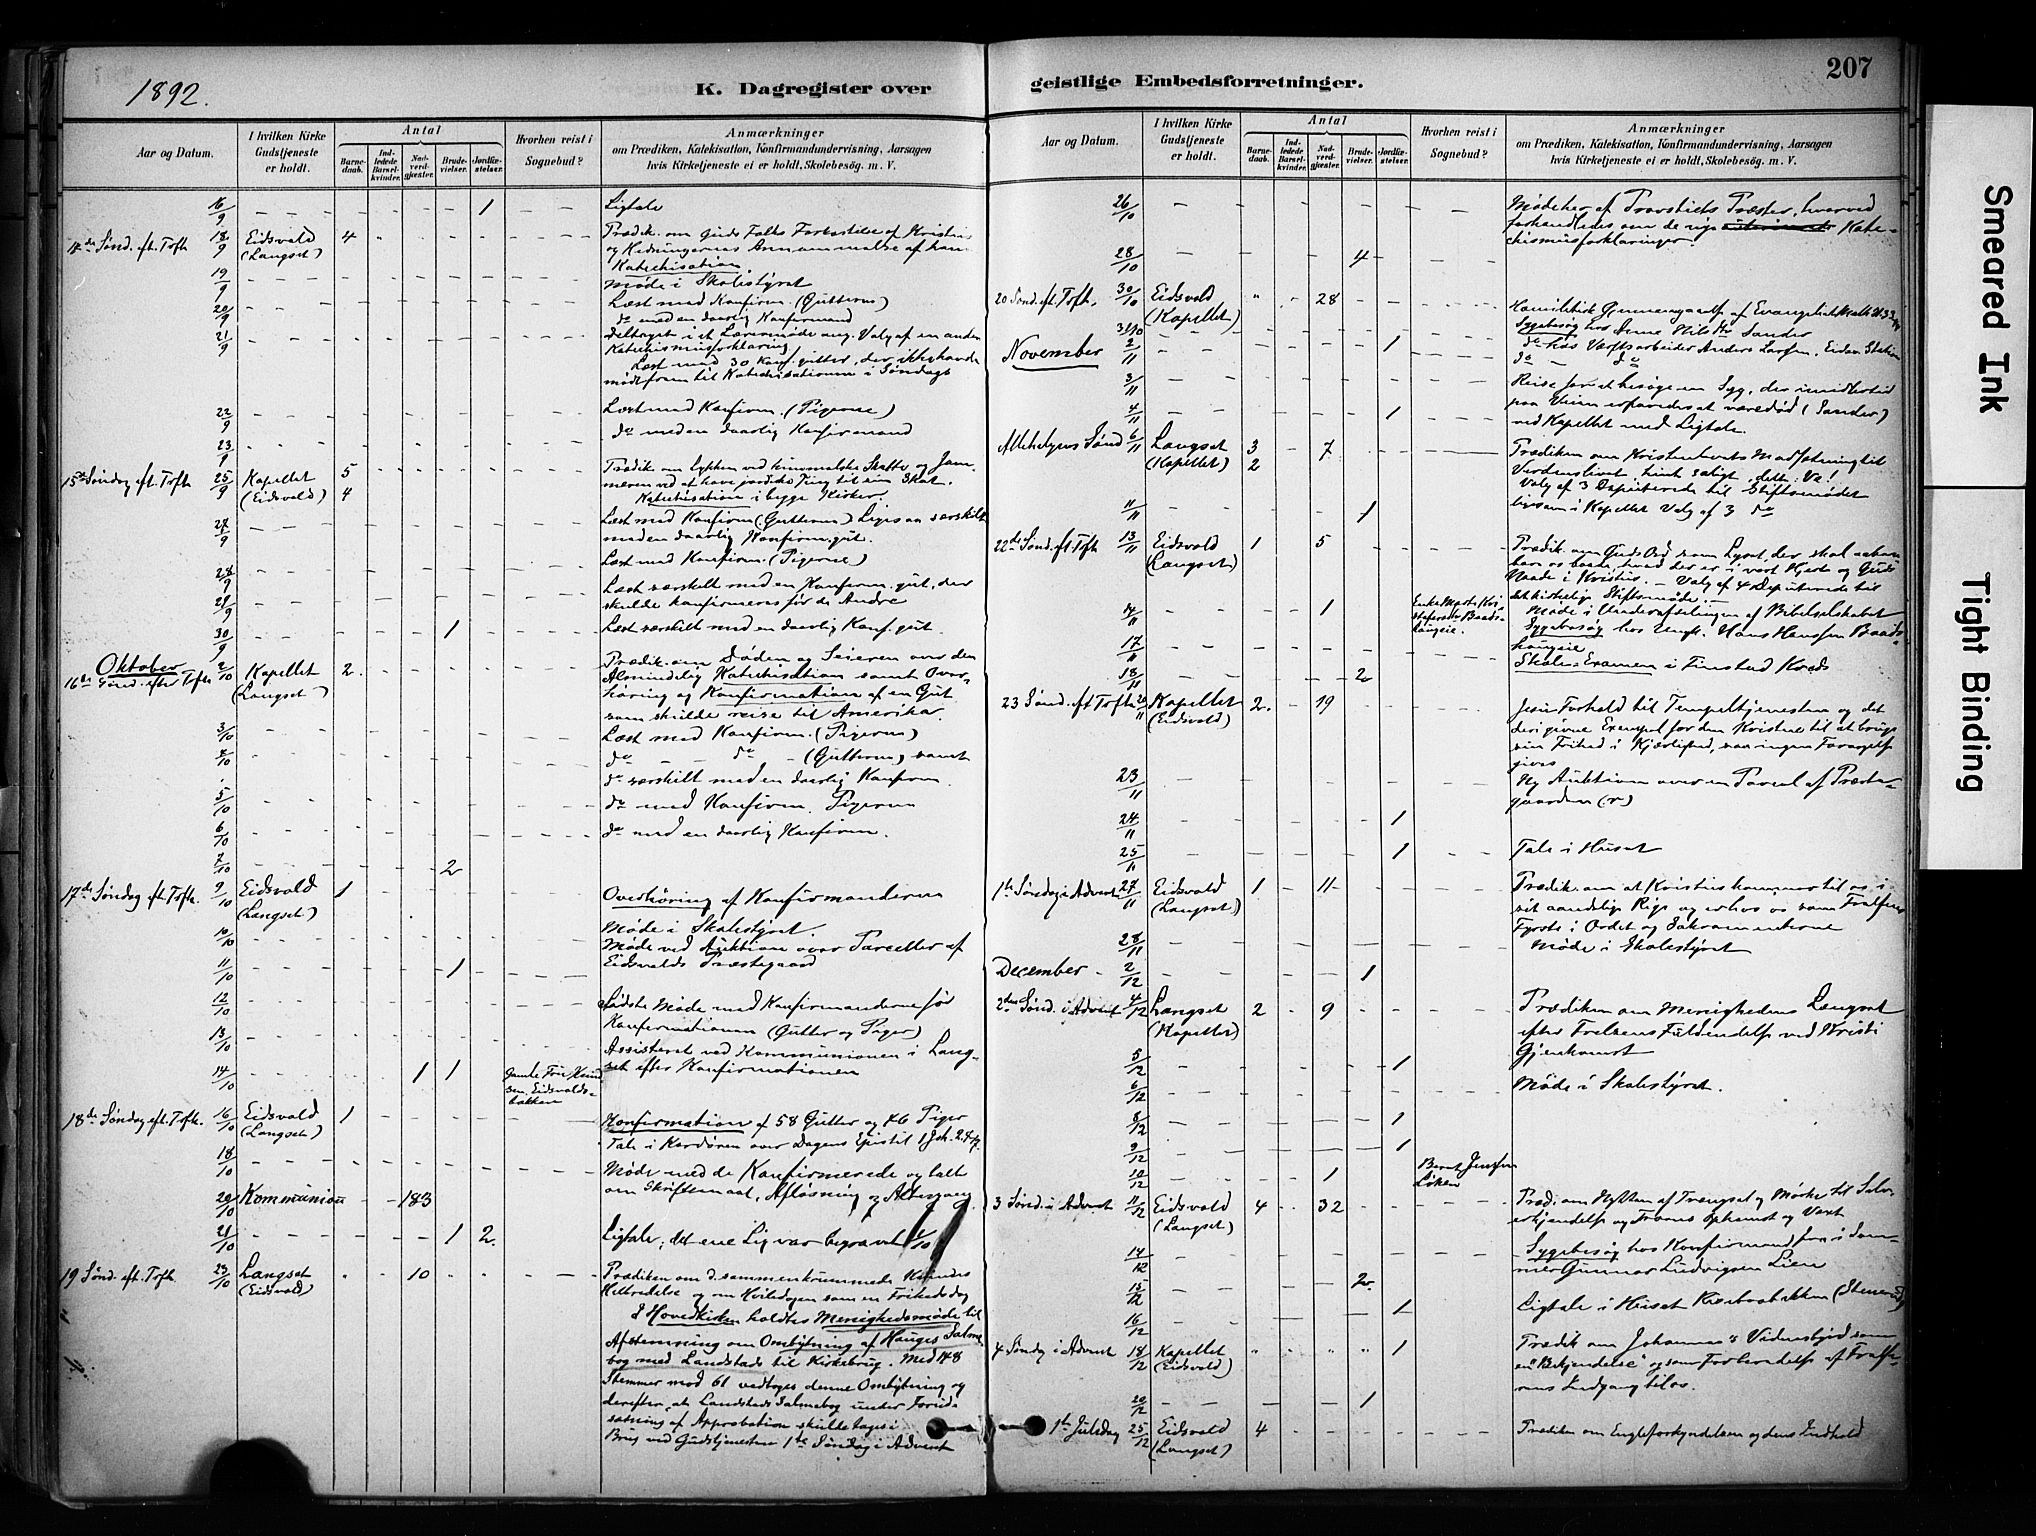 1892.
K. Dagregister over
Aar og Datum.
I hvilken Kirke Gudstjeneste er holdt.
Antal
Barnedaab.
Indledede Barselkvinder.
Nadverdgjæster.
Brudevielser.
Jordfæstelser.
Hvorhen reist i Sognebud?
Anmærkninger
om Prædiken, Katekisation, Konfirmandundervisning, Aarsagen
hvis Kirketjeneste ei er holdt, Skolebesög. m. V.
16/9 1 Ligtale
14de Sønd. eft. Trfh 18/9 Eidsvold (Langset) 4 Prædik. om Guds Folks Forkastelse af Kristus
og Hedningernes Annammelse af ham
Katechisation
19/9 Møde i Skolestyret
Læst med Konfirm. (Gutterne)
20/9 do med en daarlig Konfirmand
21/9 Deltaget i et Lærermøde ang. Valg af en anden
Katechismusforklaring
Læst med 30 Konf. gutter, der ikke havde
mødt frem til Katechisationen i Søndags
22/9 Læst med Konfirm. (Pigerne)
do med en daarlig Konfirmand
23/9
15de Søndag eft. Trfh 25/9 Kapellet (Eidsvold) 5 4 Prædik. om Lykken ved himmelske Skatte og Jam-
meren ved at have jordiske Ting til sin Skat.
Katechisation i begge Kirker
27/9 Læst med Konfirm (Gutterne) Ligesaa særskilt
med en daarlig Konfirm. gut.
Læst med Konfirm. (Pigerne)
28/9 Læst særskilt med en Konfirm. gut, der
29/9 skulde konfirmeres før de Andre
30/9 1 Læst særskilt med en daarlig Konf. gut.
Oktober
16de Sønd. efter Trfh 2/10 Kapellet (Langset) 2. Prædik. om Døden og Seieren over den
Almindelig Katechisation samt Over-
høring og Konfirmation af en Gut
som skulde reise til Amerika.
3/10 Læst med Konfirm. (Pigerne)
4/10 do — do — (Gutterne) samt
do særskilt med en daarlig Konfirm.
5/10 do med Konfirm. Pigerne
6/10 do med en daarlig Konfirm.
7/10 2
17de Søndag eft. Trfh. 9/10 Eidsvold (Langset) 1 Overhøring af Konfirmanderne
10/10 Møde i Skolestyret.
11/10 1 Møde ved Auktion over Parceller af
Eidsvolds Præstegaard
12/10 Sidste Møde med Konfirmanderne før
Konfirmationen (Gutter og Piger)
13/10 Assisteret ved Kommunionen i Lang-
14/10 1 1 set efter Konfirmationen
18de Søndag eft. Trfh. 16/10 Eidsvold (Langset) 1 Konfirmation af 58 Gutter og 46 Piger
Tale i Kordøren over Dagens Epistel 1 Joh. 2.
18/10 Møde med de Konfirmerede og talt
20/10 Kommunion 183 om Skriftemaal, Afløsning og Altergang
21/10 1 2. Ligtale; det ene Lig var begravet
19 Sønd. eft. Trfh. 23/10 Langset (Eidsvold) 10 Prædiken om d. sammenkrummede Kvindes
Helbredelse og om Hviledagen som en Frihedsdag
I Hovedkirken holdtes Menighedsmøde til
Afstemning om Ombytning af Hauges Salme-
bog med Landstads til Kirkebrug. Med 148
Stemmer mod 61 vedtoges denne Ombytning og
derefter, at Landstads Salmebog under Forud-
sætning af Approbation skulde tages i
Brug ved Gudstjenesten 1ste Søndag i Advent
geistlige Embedsforretninger.
207
Aar og Datum.
I hvilken Kirke Gudstjeneste er holdt.
Antal
Barnedaab.
Indledede Barselkvinder.
Nadverdgjæster.
Brudevielser.
Jordfæstelser.
Hvorhen reist i Sognebud?
Anmærkninger
om Prædiken, Katekisation, Konfirmandundervisning, Aarsagen
hvis Kirketjeneste ei er holdt, Skolebesög. m. V.
26/10 Møde her af Provstiets Præster, hvorved
forhandledes om de nye Kate-
chismusforklaringer.
28/10 4
20 Sønd. eft. Trfh. 30/10 Eidsvold (Kapellet) 28 Homiletisk Gjennemgaaelse af Evangeliet
31/10 Sygebesøg hos Sander
November 2/11 1 do hos Værftsarbeider Anders Larsen, Eidsv. Station
do — do
3/11 Reise for at besøge en Syg, der imidlertid
4/11 1 paa Veien erfaredes at være død (Sander)
ved Kapellet med Ligtale.
Allehelgens Sønd 6/11 Langset (Kapellet) 3 2 7 Prædiken om Kristenlivets Modsætning til
Verdenslivet hint saligt, dette: Ve!
Valg af 3 Deputerede til Stiftsmødet
11/11 1 ligesom i Kapellet Valg af 3 do
22de Sønd. eft Trfh 13/11 Eidsvold (Langset) 1 5 Prædik. om Guds Ord som Lyset, der skal
Naade i Kristus. — Valg af 4 Deputerede til
det kirkelige Stiftsmøde.
14/11 1 Møde i Underafdelingen af Bibelselskabet
17/11 Sygebesøg hos Hans Hanssen
18/11 2 Skole-Examen i Finstad Kreds
23 Sønd. eft Trfh 20/11 Kapellet (Eidsvold) 2. 19 Jesu Forhold til Tempeltjenesten og det
deri givne Exempel for den Kristne til at bruge
sin Frihed i Kjærlighed, saa ingen Forargelse
gives
23/11 Ny Auktion over en Parcel af Præste-
gaarden (r)
24/11 1
25/11 1 Tale i Huset
1ste Søndag i Advent 27/11 Eidsvold (Langset) 1 11 Prædik. om at Kristus kommer til os i
sit aandelige Rige og er hos os som Frelsens
Fyrste i Ordet og Sakramenterne
28/11 Møde i Skolestyret
December 2/12 1
2den Sønd. i Advent 4/12 Langset (Kapellet) 2 9 Prædiken om Menighedens Længsel
efter Frelsens Fuldendelse ved Kristi
Gjenkomst
5/12 1
6/12 Møde i Skolestyret.
8/12 1
9/12 1
10/12 1 Bernt Jensen Løken
3 Sønd. i Advent 11/12 Eidsvold (Langset) 4 32 Præd. om Nytten af Trængsel og Mørke til Selv-
erkjendelse og Troens Opkomst og Væxt
14/12 Sygebesøg hos Konfirmand fra i Som-
mer Gunnar Ludvigsen Lien
15/12 2.
16/12 1 Ligtale i Huset
4 Søndag i Advent 18/12 Kapellet (Eidsvold) 1 Prædik om Johannes's Vidnesbyrd som
en "Bekjendelse" og som Forberedelse af Frelse-
rens Indgang til os.
20/12 1
1ste Juledag 25/12 Eidsvold (Langset) 4 Prædiken om Engleforkyndelsen og dens Indhold
Smeared Ink
Tight Binding